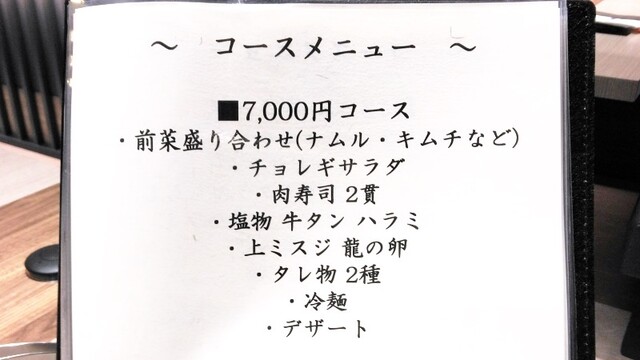 ～ コースメニュー ～
■7,000円コース
・前菜盛り合わせ(ナムル・キムチなど)
・チョレギサラダ
・肉寿司 2貫
・塩物 牛タン ハラミ
・上ミスジ 龍の卵
・タレ物 2種
・冷麺
・デザート